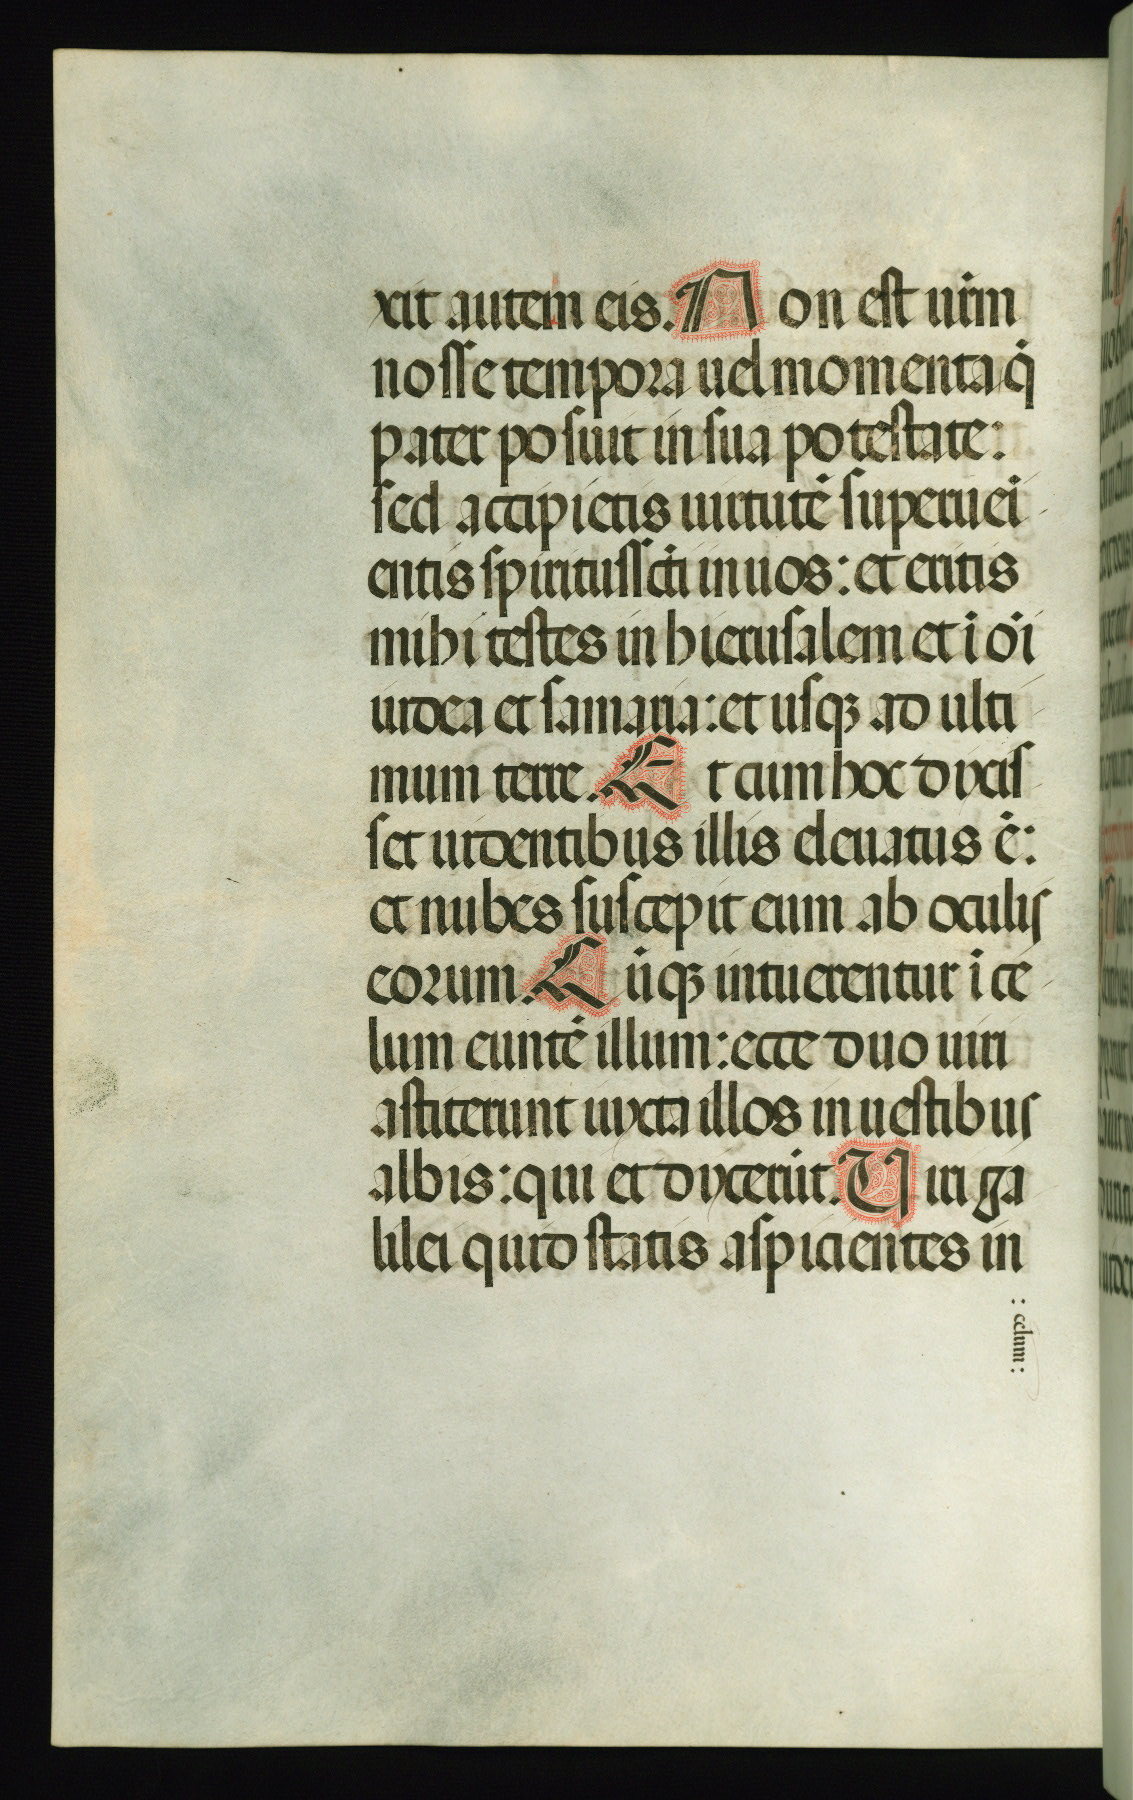 xit autem eis. Non est urm̄
nosse tempora uel momenta q̄
pater posuit in sua potestate:
sed accipietis uirtutē superuei
entis spiritus scti in uos: et eritis
mihi testes in hierusalem et ī oī
iudea et samaria: et usqꝫ ad ulti
mum terre. Et cum hoc dixis
set uidentibus illis eleuatus ē:
et nubes suscepit eum ab oculis
eorum. Cūqꝫ intuerentur ī ce
lum euntē illum: ecce duo uiri
astiterunt iuxta illos in uestibus
albis: qui et dixerūt. Uiri ga
lilei quid statis aspicientes in
: celum :